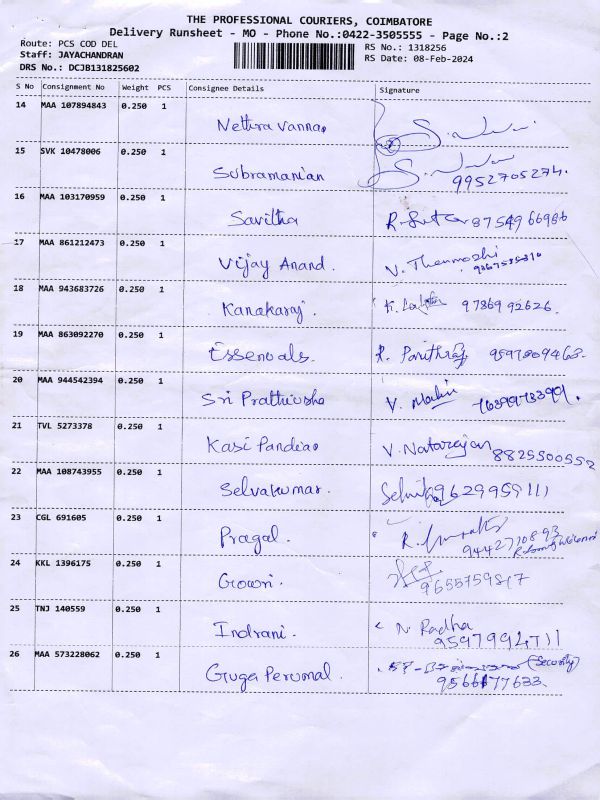 THE PROFESSIONAL COURIERS, COIMBATORE
Delivery Runsheet - MO - Phone No.:0422-3505555 - Page No.:2
Route: PCS COD DEL
RS No.: 1318256
Staff: JAYACHANDRAN
RS Date: 08-Feb-2024
DRS No.: DCJB131825602
S No Consignment No Weight PCS Consignee Details Signature
14 MAA 107894843 0.250 1
15 SVK 10478006 0.250 1 Subramanian 9952705274.
16 MAA 103170959 0.250 1 Savitha 8754966986
17 MAA 861212473 0.250 1 Vijay Anand.
18 MAA 943683726 0.250 1 Kanakaraj. 9786992626.
19 MAA 863092270 0.250 1 Essenoals.
20 MAA 944542394 0.250 1 Sri Prathiusha V. Malini
21 TVL 5273378 0.250 1 V. Natarajan 8825500552
22 MAA 108743955 0.250 1 Selvakumar. 9629959111
23 CGL 691605 0.250 1 Pragal. 9442710893
24 KKL 1396175 0.250 1 Gowri. 9655759817
25 TNJ 140559 0.250 1 Indrani. N. Radha 9597994711
26 MAA 573228062 0.250 1 Guga Perumal. (Security)